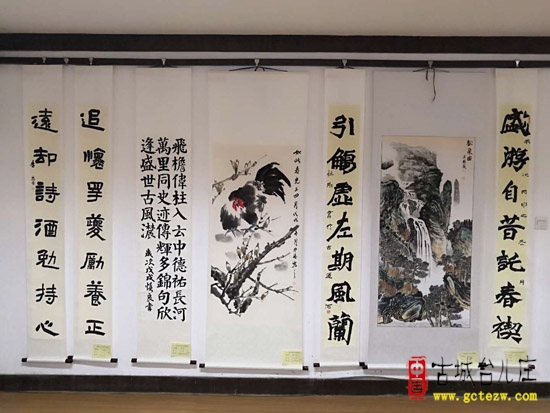 盛游自昔託春禊
引觴虛左期風蘭
飛檐偉柱入云中德祐長河
萬里同史迹傳輝多錦句欣
逢盛世古風濃
歲次戊戌慎良書
追懷 羲勵養正
遠却詩酒勉持心
古城台儿庄
www.gctezw.com